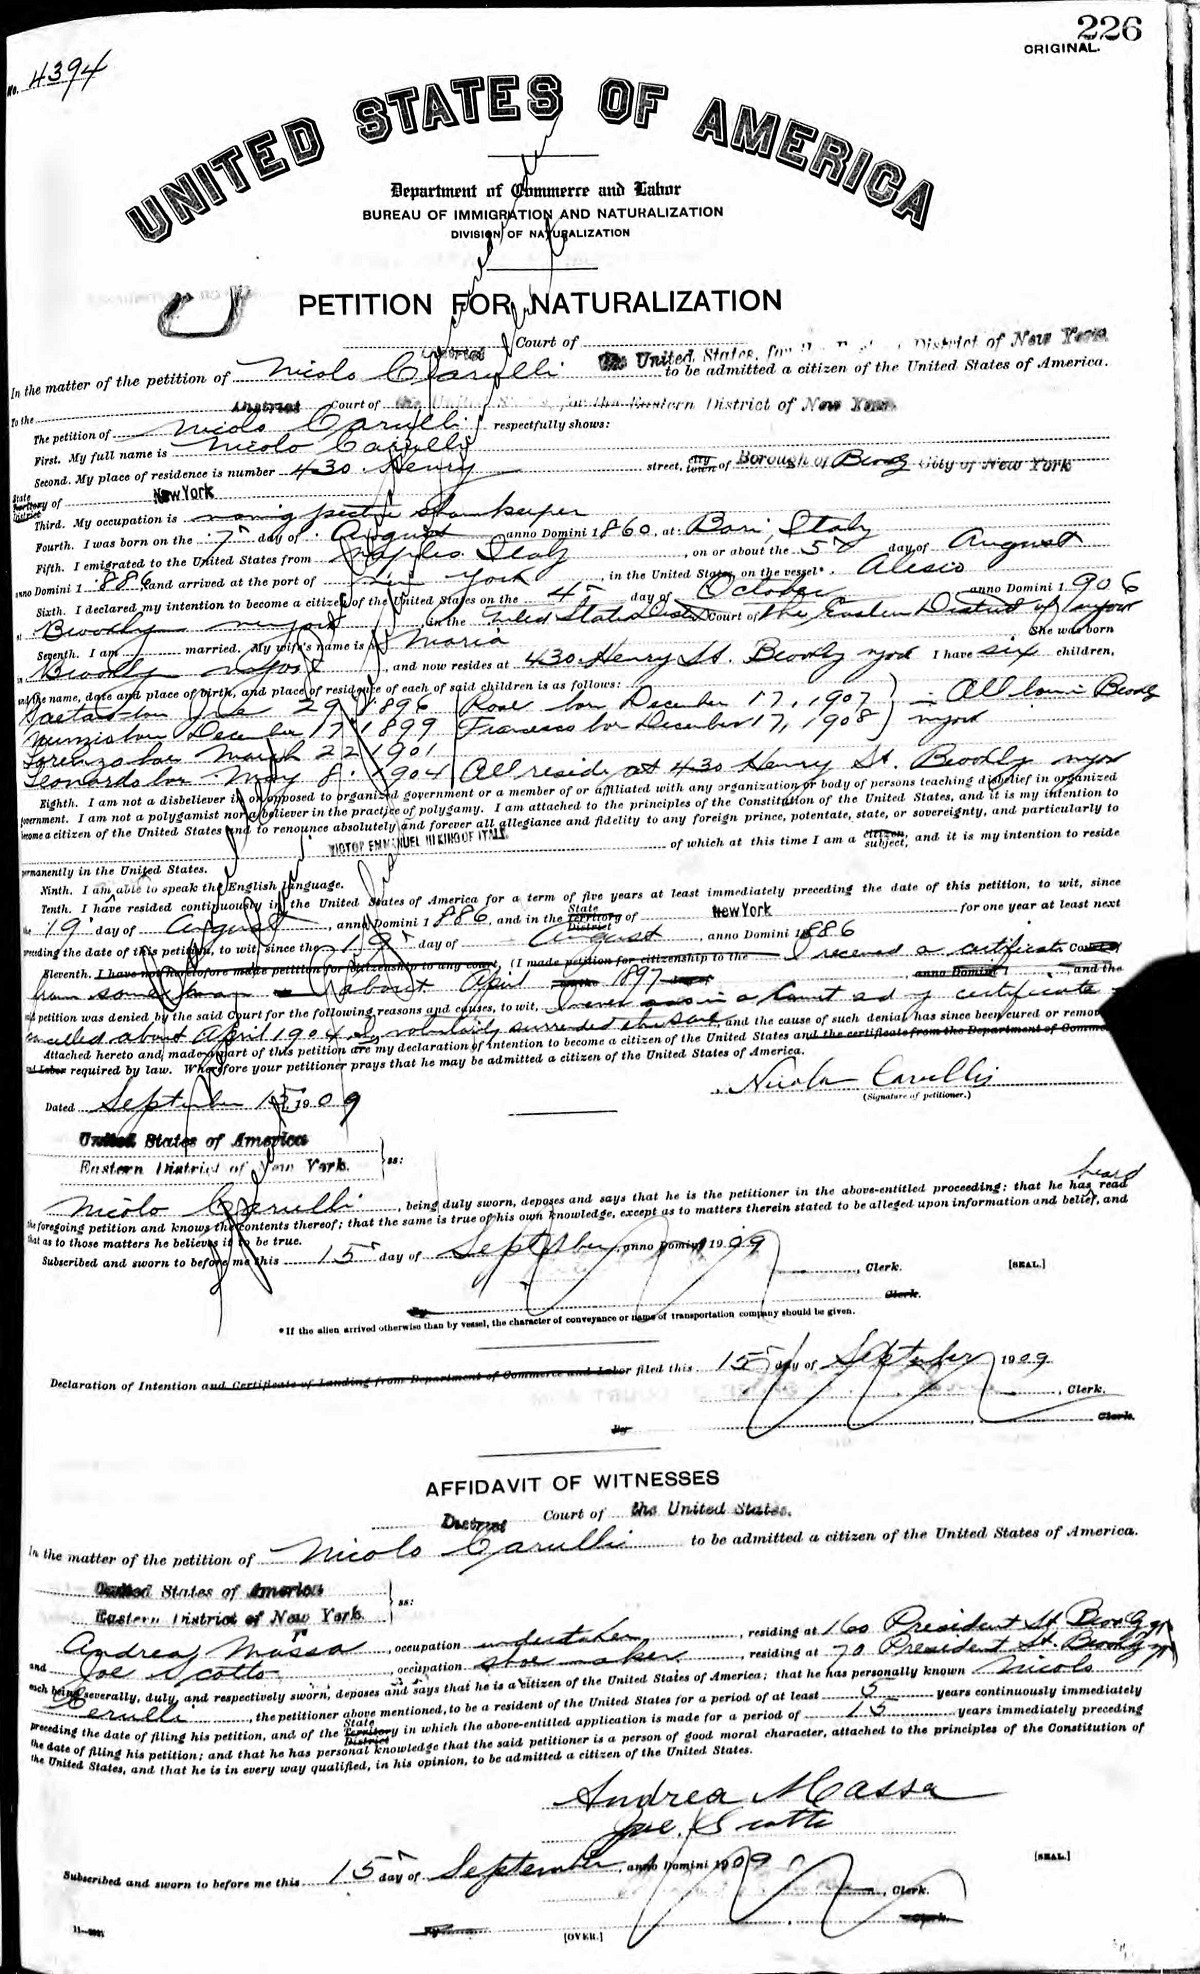 226
ORIGINAL.
No. 4394
UNITED STATES OF AMERICA
Department of Commerce and Labor
BUREAU OF IMMIGRATION AND NATURALIZATION
DIVISION OF NATURALIZATION
PETITION FOR NATURALIZATION
District Court of the United States, for the Eastern District of New York.
In the matter of the petition of Nicolo Carulli to be admitted a citizen of the United States of America.
To the District Court of the United States, for the Eastern District of New York.
The petition of Nicolo Carulli respectfully shows:
First. My full name is Nicolo Carulli
Second. My place of residence is number 430 Henry street, city town of Borough of Brooklyn City of New York
State Territory District of New York
Third. My occupation is
Fourth. I was born on the 7" day of August anno Domini 1860, at Bari, Italy
Fifth. I emigrated to the United States from Naples Italy, on or about the 5" day of August
anno Domini 1886, and arrived at the port of New York, in the United States, on the vessel* Alesia
Sixth. I declared my intention to become a citizen of the United States on the 4" day of October anno Domini 1906
at Brooklyn New York, in the United States District Court of the Eastern District of N York
Seventh. I am married. My wife's name is Maria She was born
in Brooklyn N York and now resides at 430 Henry St. Brooklyn N York I have six children,
and the name, date and place of birth, and place of residence of each of said children is as follows:
Gaetano born 29 1896 Rose born December 17, 1907 All born in Brooklyn
Nunzio born December 17 1899 Francesco born December 17, 1908 N York
Lorenzo born March 22 1901
Leonardo born May 8 1904 All reside at 430 Henry St. Brooklyn N York
Eighth. I am not a disbeliever in or opposed to organized government or a member of or affiliated with any organization or body of persons teaching disbelief in organized
government. I am not a polygamist nor a believer in the practice of polygamy. I am attached to the principles of the Constitution of the United States, and it is my intention to
become a citizen of the United States and to renounce absolutely and forever all allegiance and fidelity to any foreign prince, potentate, state, or sovereignty, and particularly to
VICTOR EMMANUEL III KING OF ITALY of which at this time I am a citizen subject, and it is my intention to reside
permanently in the United States.
Ninth. I am able to speak the English language.
Tenth. I have resided continuously in the United States of America for a term of five years at least immediately preceding the date of this petition, to wit, since
the 19" day of August, anno Domini 1886, and in the State Territory District of New York for one year at least next
preceding the date of this petition, to wit, since the 19" day of August, anno Domini 1886
Eleventh. I have not heretofore made petition for citizenship to any court. (I made petition for citizenship to the I received a certificate Court of
from some man about April 1897, anno Domini 1 and the
said petition was denied by the said Court for the following reasons and causes, to wit, I never was in a Court and my certificate
cancelled about April 1904 I voluntarily surrendered the same and the cause of such denial has since been cured or removed
Attached hereto and made a part of this petition are my declaration of intention to become a citizen of the United States and the certificate from the Department of Commerce
and Labor required by law. Wherefore your petitioner prays that he may be admitted a citizen of the United States of America.
Nicola Carulli
(Signature of petitioner.)
Dated September 15", 1909
United States of America
Eastern District of New York. ss:
Nicolo Carulli, being duly sworn, deposes and says that he is the petitioner in the above-entitled proceeding; that he has heard read
the foregoing petition and knows the contents thereof; that the same is true of his own knowledge, except as to matters therein stated to be alleged upon information and belief, and
that as to those matters he believes it to be true.
Subscribed and sworn to before me this 15" day of September, anno Domini 1909
, Clerk. [SEAL.]
By Clerk.
*If the alien arrived otherwise than by vessel, the character of conveyance or name of transportation company should be given.
Declaration of Intention and Certificate of Landing from Department of Commerce and Labor filed this 15" day of September 1909
, Clerk.
By Clerk.
AFFIDAVIT OF WITNESSES
District Court of the United States.
In the matter of the petition of Nicolo Carulli to be admitted a citizen of the United States of America.
United States of America
Eastern District of New York ss:
Andrea Massa, occupation undertaker, residing at 160 President St. Brooklyn NY
and Joe Scotto, occupation shoe maker, residing at 70 President St. Brooklyn NY
each being severally, duly, and respectively sworn, deposes and says that he is a citizen of the United States of America; that he has personally known Nicolo
Cerulli, the petitioner above mentioned, to be a resident of the United States for a period of at least 5 years continuously immediately
preceding the date of filing his petition, and of the State Territory District in which the above-entitled application is made for a period of 15 years immediately preceding
the date of filing his petition; and that he has personal knowledge that the said petitioner is a person of good moral character, attached to the principles of the Constitution of
the United States, and that he is in every way qualified, in his opinion, to be admitted a citizen of the United States.
Andrea Massa
Joe Scotto
Subscribed and sworn to before me this 15" day of September, anno Domini 1909 [SEAL.]
, Clerk.
By Clerk.
[OVER.]